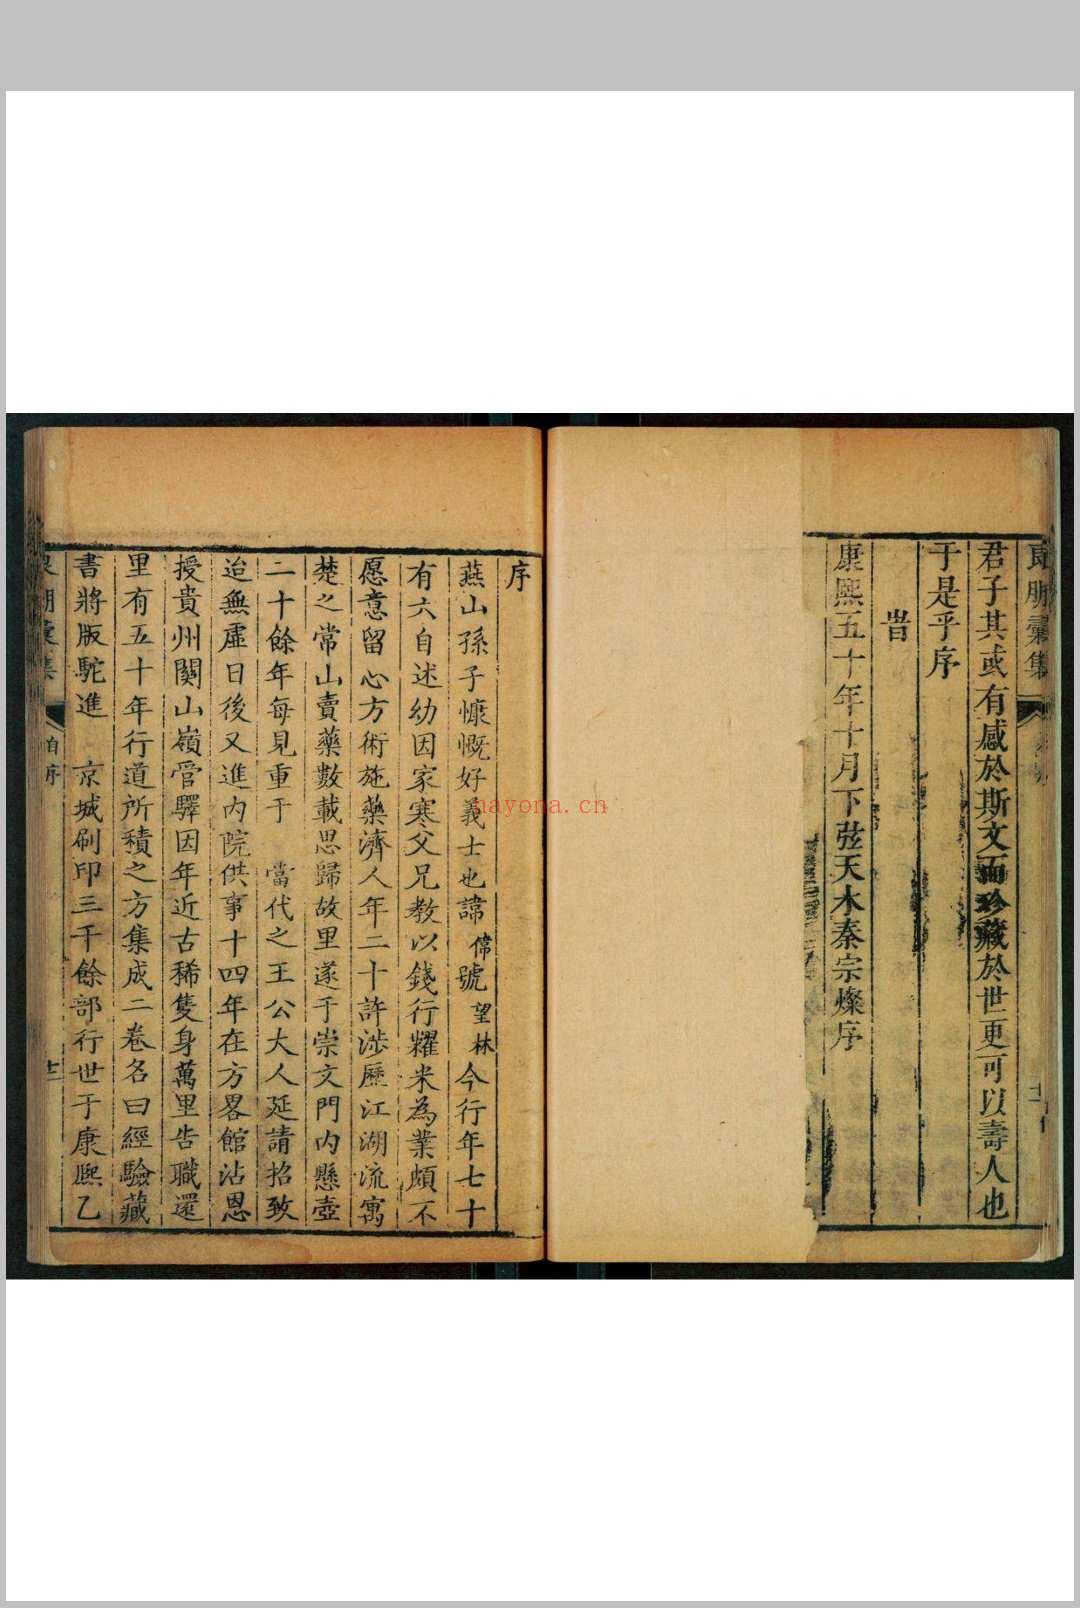 良朋彙集
君子其或有感於斯文而珍藏於世更可以壽人也
于是乎序
旹
康熙五十年十月下弦天水秦宗燦序
序
燕山孫子慷慨好義士也諱偉號望林今行年七十
有六自述幼因家寒父兄教以錢行糶米為業頗不
愿意留心方術施藥濟人年二十許涉歷江湖流寓
楚之常山賣藥數載思歸故里遂于崇文門內懸壺
二十餘年每見重于 當代之王公大人延請招致
迨無虛日後又進內院供事十四年在方畧館沾恩
授貴州關山嶺管驛因年近古稀隻身萬里告職還
里有五十年行道所積之方集成二卷名曰經驗藏
書將版駝進 京城刷印三千餘部行世于康熙乙
良朋彙集 自序 十二
nayona.cn